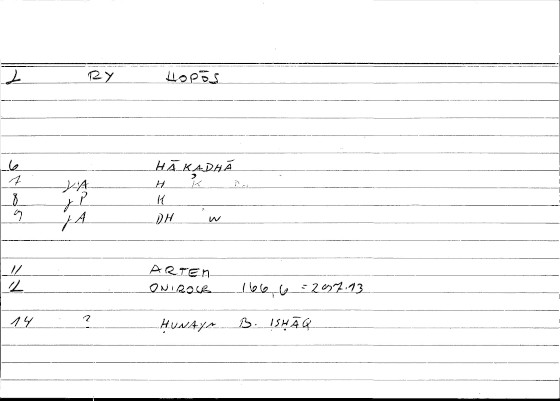 RY HOPŌS
6 HĀKADHĀ
7 H K
8 K
9 DH W
11 ARTEM
ONIROCR 166,6 = 207.13
14 ? ḤUNAYN B. ISḤĀQ